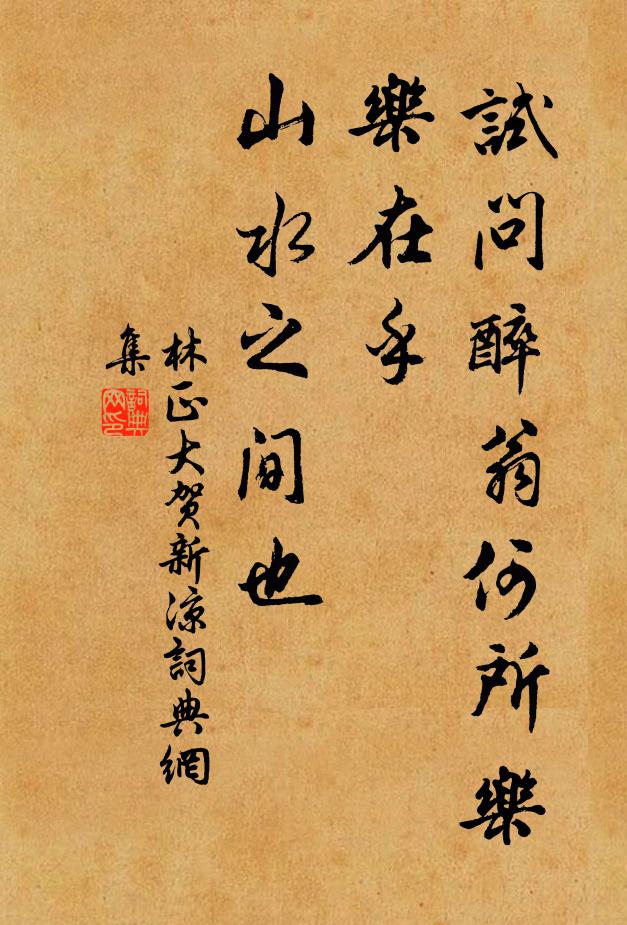 試問醉翁何所樂
樂在乎
山水之間也
林正大贺新凉詞典網
集
詞典
网印